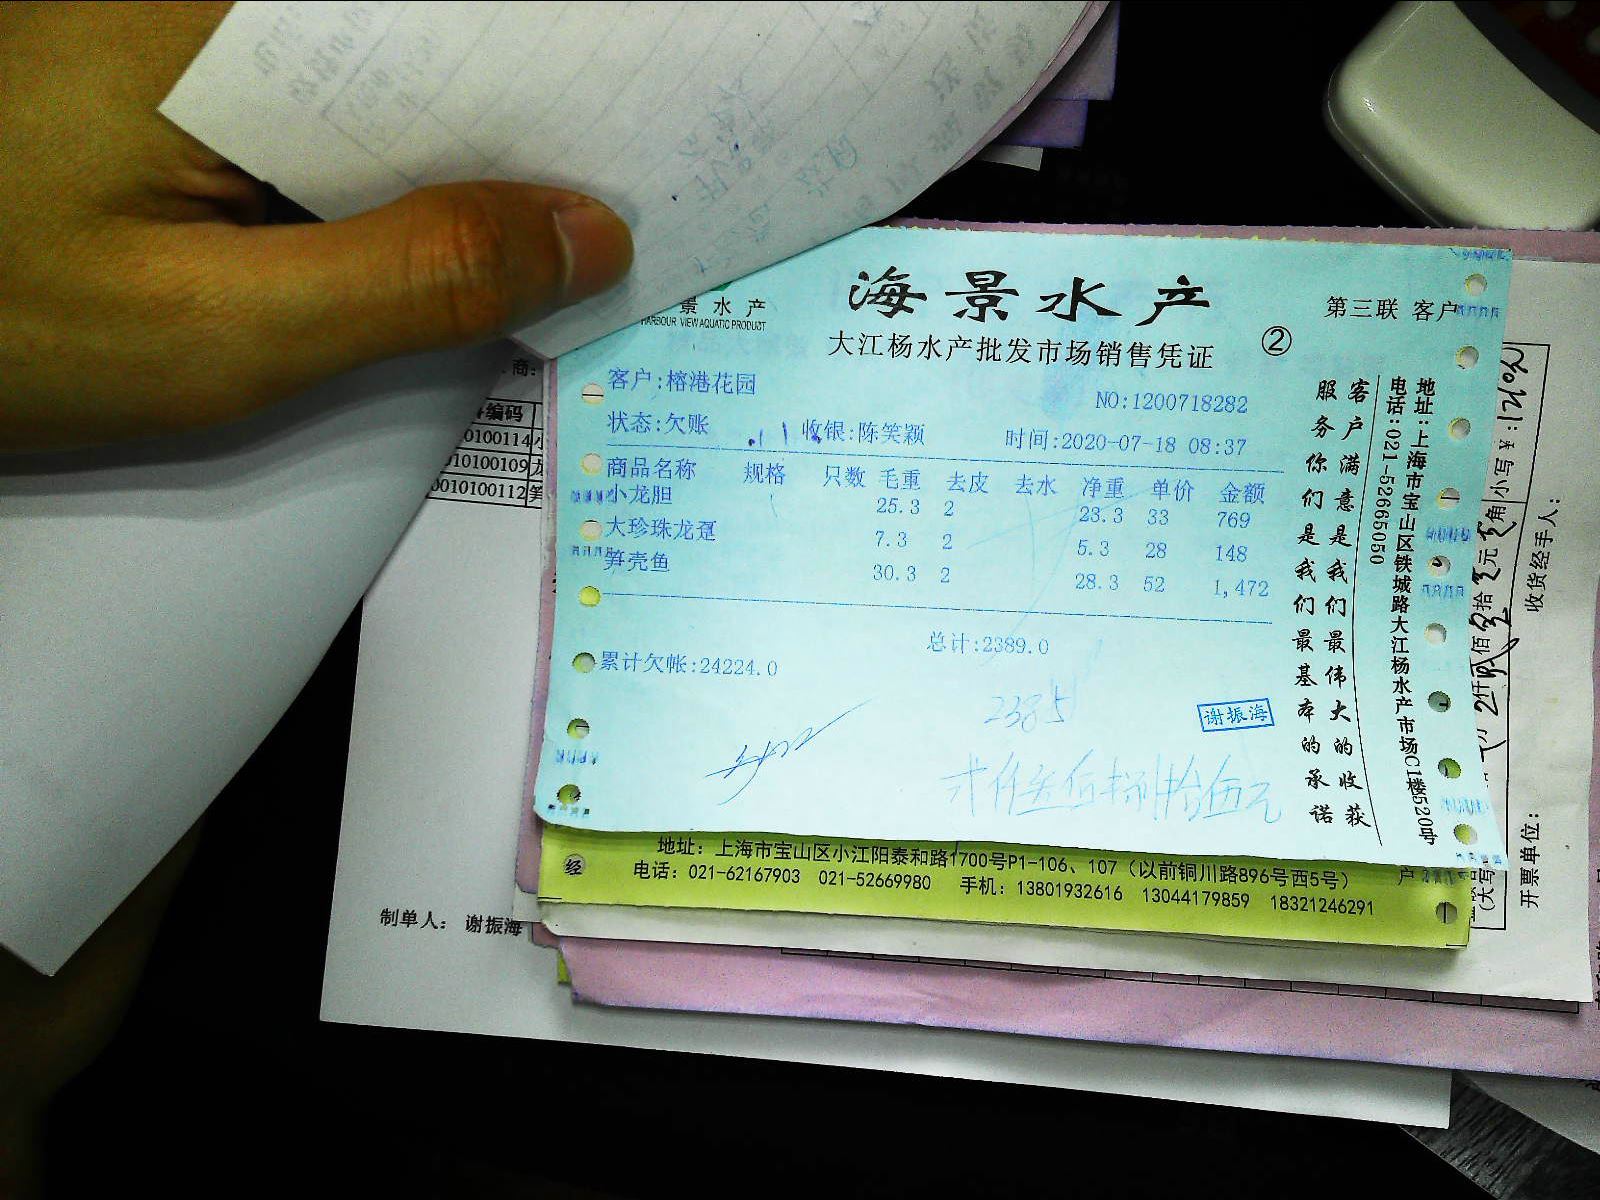 景水产
HARBOUR VIEW AQUATIC PRODUCT
海景水产
大江杨水产批发市场销售凭证
②
第三联 客户
客户:榕港花园
NO:1200718282
状态:欠账 收银:陈笑颖 时间:2020-07-18 08:37
商品名称 规格 只数 毛重 去皮 去水 净重 单价 金额
小龙胆 25.3 2 23.3 33 769
大珍珠龙趸 7.3 2 5.3 28 148
笋壳鱼 30.3 2 28.3 52 1,472
总计:2389.0
累计欠帐:24224.0
2385
谢振海
客户满意是我们最伟大的收获
服务你们是我们最基本的承诺
地址:上海市宝山区铁城路大江杨水产市场C1楼520号
电话:021-52665050
商:
编码
0100114
010100109
0010100112
制单人: 谢振海
经
地址: 上海市宝山区小江阳泰和路1700号P1-106、107 (以前铜川路896号西5号)
电话: 021-62167903 021-52669980 手机: 13801932616 13044179859 18321246291
户
小写¥:
收货经手人:
开票单位:
(大写